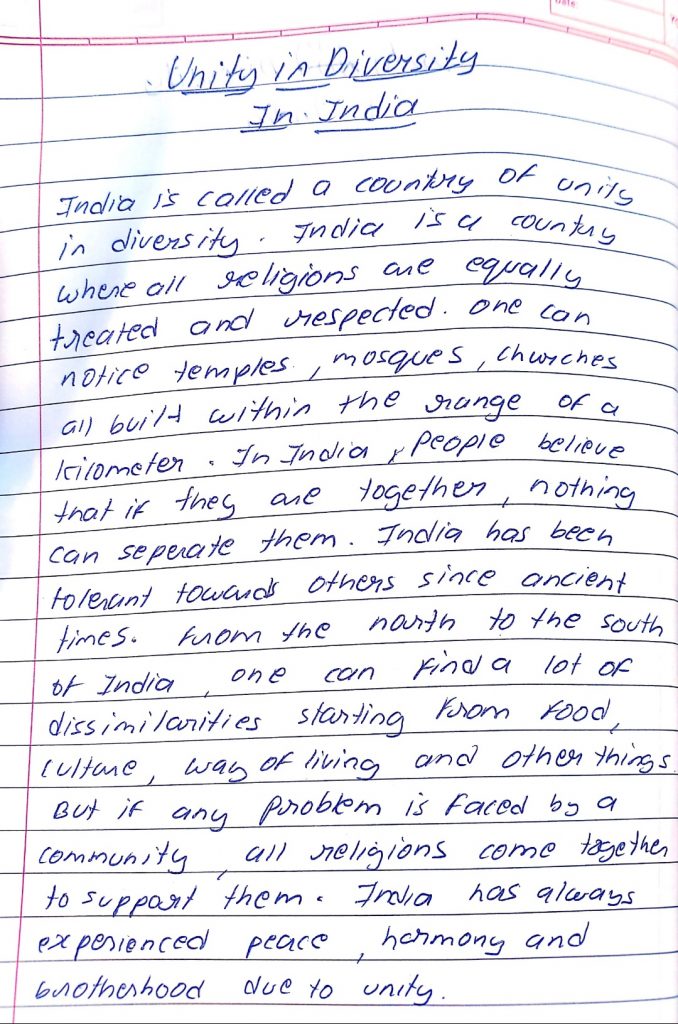 Unity in Diversity
In India
India is called a country of unity
in diversity. India is a country
where all religions are equally
treated and respected. One can
notice temples, mosques, churches
all built within the range of a
kilometer. In India, People believe
that if they are together, nothing
can seperate them. India has been
tolerant towards others since ancient
times. From the north to the south
of India, one can find a lot of
dissimilarities starting from food,
culture, way of living and other things.
But if any problem is faced by a
community, all religions come together
to support them. India has always
experienced peace, harmony and
brotherhood due to unity.